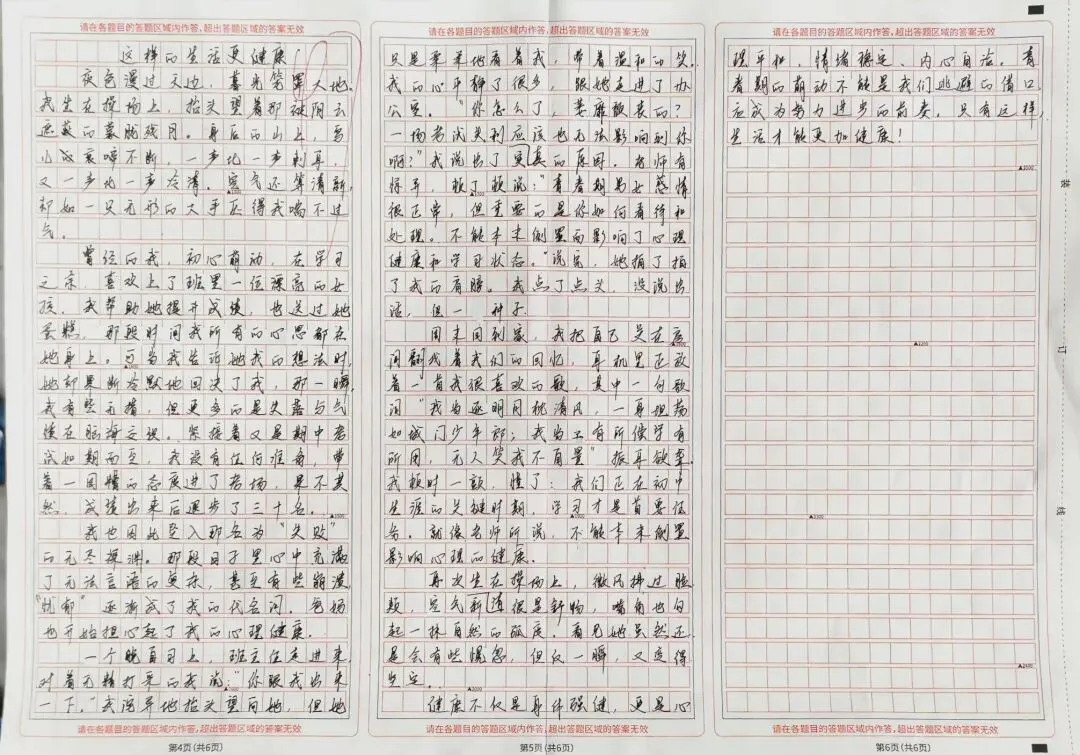 请在各题目的答题区域内作答，超出答题区域的答案无效
这样的生活更健康
夜色漫过天边，暮光笼罩大地。
我坐在操场上，抬头望着那被阴云
遮蔽的朦胧残月。身后的山上，鸟
儿哀啼不断，一声比一声刺耳，
又一声比一声冷清。空气还算清新，
却如一只无形的大手压得我喘不过
气。
曾经的我，初心萌动，在学习
之余，喜欢上了班里一位漂亮的女
孩，我帮助她提升成绩，也送过她
蛋糕，那段时间我所有的心思都在
她身上。可当我告诉她我的想法时，
她却果断冷默地回决了我，那一瞬，
我有些无措，但更多的是失落与气
愤在脑海交织。紧接着又是期中考
试如期而至，我没有任何准备，带
着一团糟的态度进了考场，果不其
然，成绩出来后退步了三十名。
我也因此坠入那名为“失败”
的无尽深渊。那段日子里心中充满
了无法言语的复杂，甚至有些崩溃，
“忧郁”逐渐成了我的代名词。爸妈
也开始担心起了我的心理健康。
一个晚自习上，班主任走进来，
对着无精打采的我说：“你跟我出来
一下。”我诧异地抬头望向她，但她
请在各题目的答题区域内作答，超出答题区域的答案无效
第4页（共6页）
请在各题目的答题区域内作答，超出答题区域的答案无效
只是柔柔地看着我，带着温和的笑。
我的心平静了很多，跟她走进了办
公室。“你怎么了，萎靡散丧的？
一场考试失利应该也无法影响到你
啊？”我说出了更真的原因。老师有
惊异，顿了顿说：“青春期男女感情
很正常，但重要的是你如何看待和
处理。不能本末倒置而影响了心理
健康和学习状态。”说完，她拍了拍
了我的肩膀。我点了点头，没说出
话，但一 种子
周末回到家，我把自己关在房
间翻找着我们的回忆，耳机里正放
着一首我很喜欢的歌，其中一句歌
词“我当逐明月枕清风，一身坦荡
如城门少年郎；我当工有所偿学有
所用，无人笑我不自量”振耳欲聋。
我顿时一颤，懂了：我们正在初中
生涯的关键时期，学习才是首要任
务。就像老师所说，不能本末倒置
影响心理的健康。
再次坐在操场上，微风拂过脸
颊，空气新清很是舒畅，嘴角也勾
起一抹自然的弧度。看见她虽然还
是会有些恍惚，但仅一瞬，又变得
坚定。
健康不仅是身体强健，更是心
请在各题目的答题区域内作答，超出答题区域的答案无效
第5页（共6页）
请在各题目的答题区域内作答，超出答题区域的答案无效
理平和，情绪稳定、内心自洽。青
春期的萌动不能是我们逃避的借口
应成为努力进步的前奏。只有这样，
生活才能更加健康！
装
订
线
请在各题目的答题区域内作答，超出答题区域的答案无效
第6页（共6页）